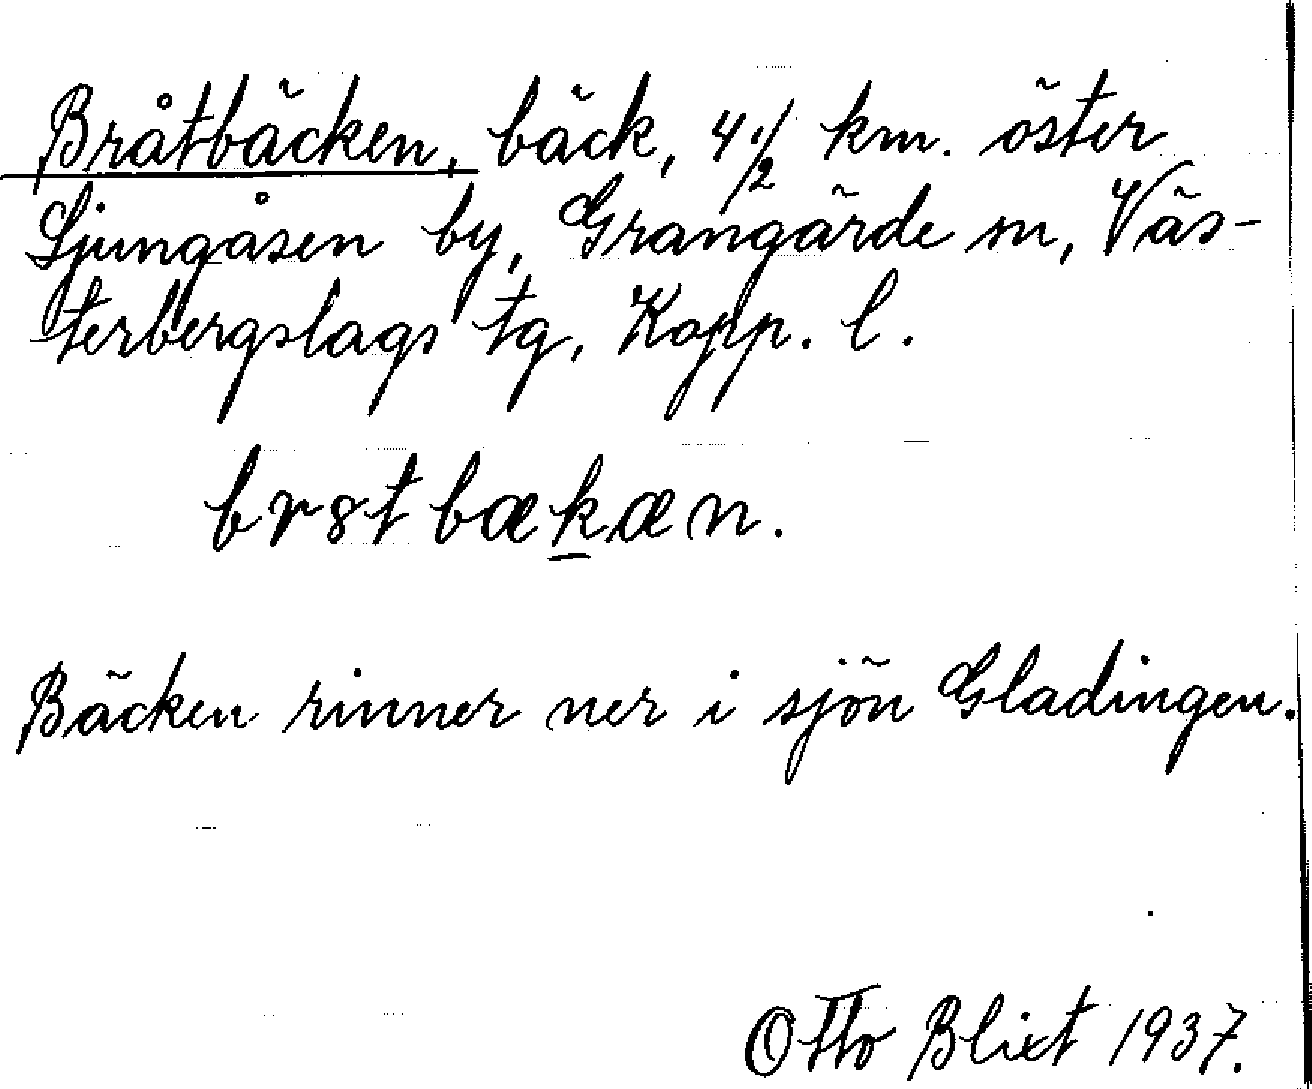 Bråtbäcken, bäck, 4 1/2 km. öster
Ljungåsen by, Grangärde sn, Väs-
terbergslags tg, Kopp. l.
br8tbækæn.
Bäcken rinner ner i sjön Gladingen.
Otto Blixt 1937.